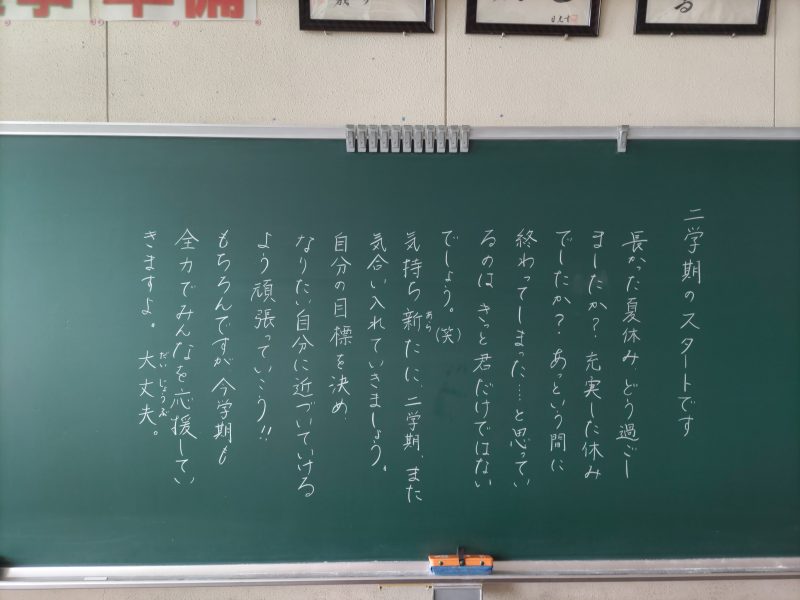 準備
二学期のスタートです
長かった夏休み、どう過ごし
ましたか？充実した休み
でしたか？あっという間に
終わってしまった…と思ってい
るのは きっと君だけではない
でしょう。(笑)
気持ち新たに、二学期、また
あら
気合い入れていきましょう。
自分の目標を決め、
なりたい自分に近づいていける
よう頑張っていこう!!
もちろんですが、今学期も
全力でみんなを応援してい
きますよ。 大丈夫。
だいじょうぶ